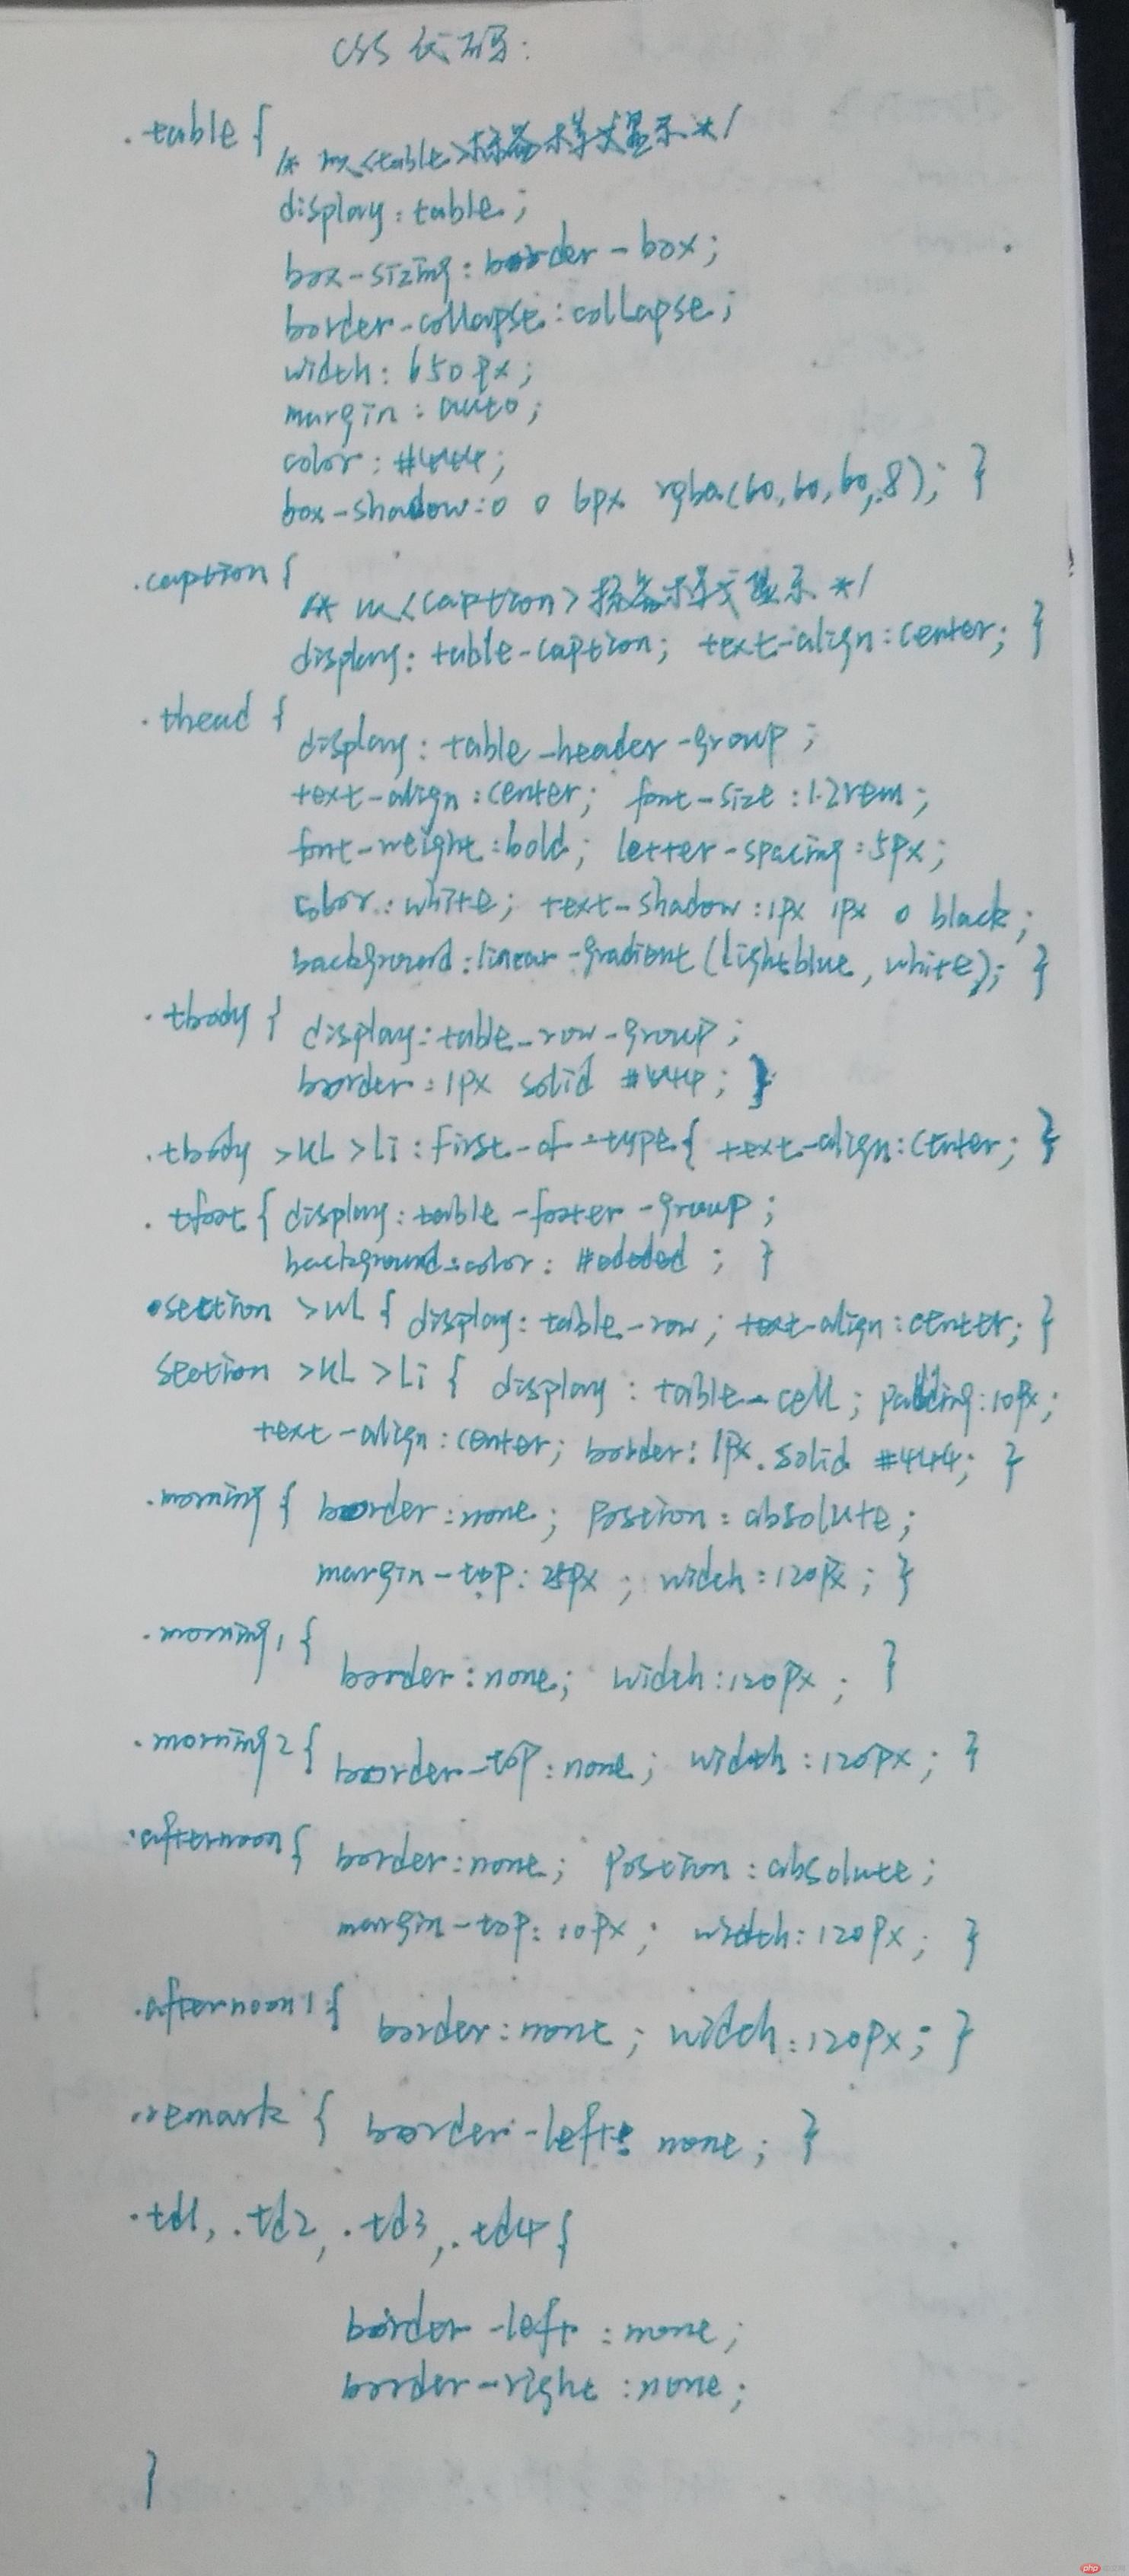 CSS 代码:
.table {
/* 以<table>标签样式显示 */
display: table;
box-sizing: border-box;
border-collapse: collapse;
width: 650px;
margin: auto;
color: #444;
box-shadow: 0 0 6px rgba(60,60,60,.8); }
.caption {
/* 以<caption>标签样式显示 */
display: table-caption; text-align: center; }
.thead {
display: table-header-group;
text-align: center; font-size: 1.2rem;
font-weight: bold; letter-spacing: 5px;
color: white; text-shadow: 1px 1px 0 black;
background: linear-gradient(lightblue, white); }
.tbody { display: table-row-group;
border: 1px solid #444; }
.tbody >ul >li:first-of-type { text-align: center; }
.tfoot { display: table-footer-group;
background-color: #ededed; }
section >ul { display: table-row; text-align: center; }
section >ul >li { display: table-cell; padding: 10px;
text-align: center; border: 1px solid #444; }
.morning { border: none; position: absolute;
margin-top: 25px; width: 120px; }
.morning1 {
border: none; width: 120px; }
.morning2 { border-top: none; width: 120px; }
.afternoon { border: none; position: absolute;
margin-top: 10px; width: 120px; }
.afternoon1 { border: none; width: 120px; }
.remark { border-left: none; }
.td1, .td2, .td3, .td4 {
border-left: none;
border-right: none;
}
php